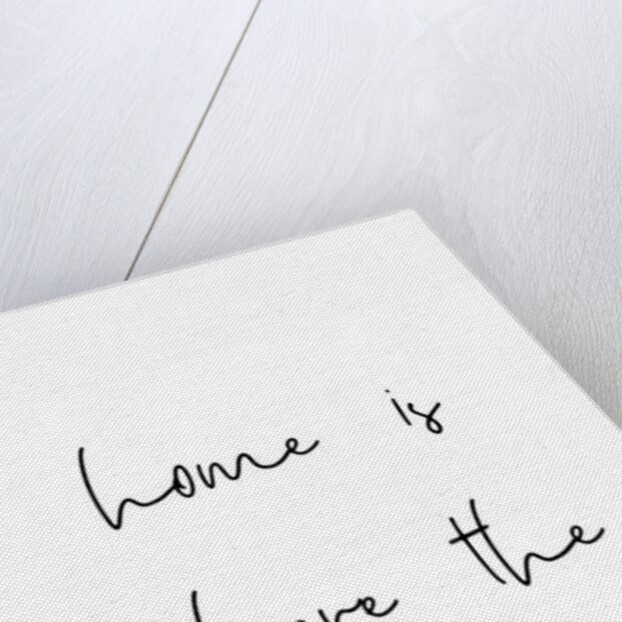 home is
the